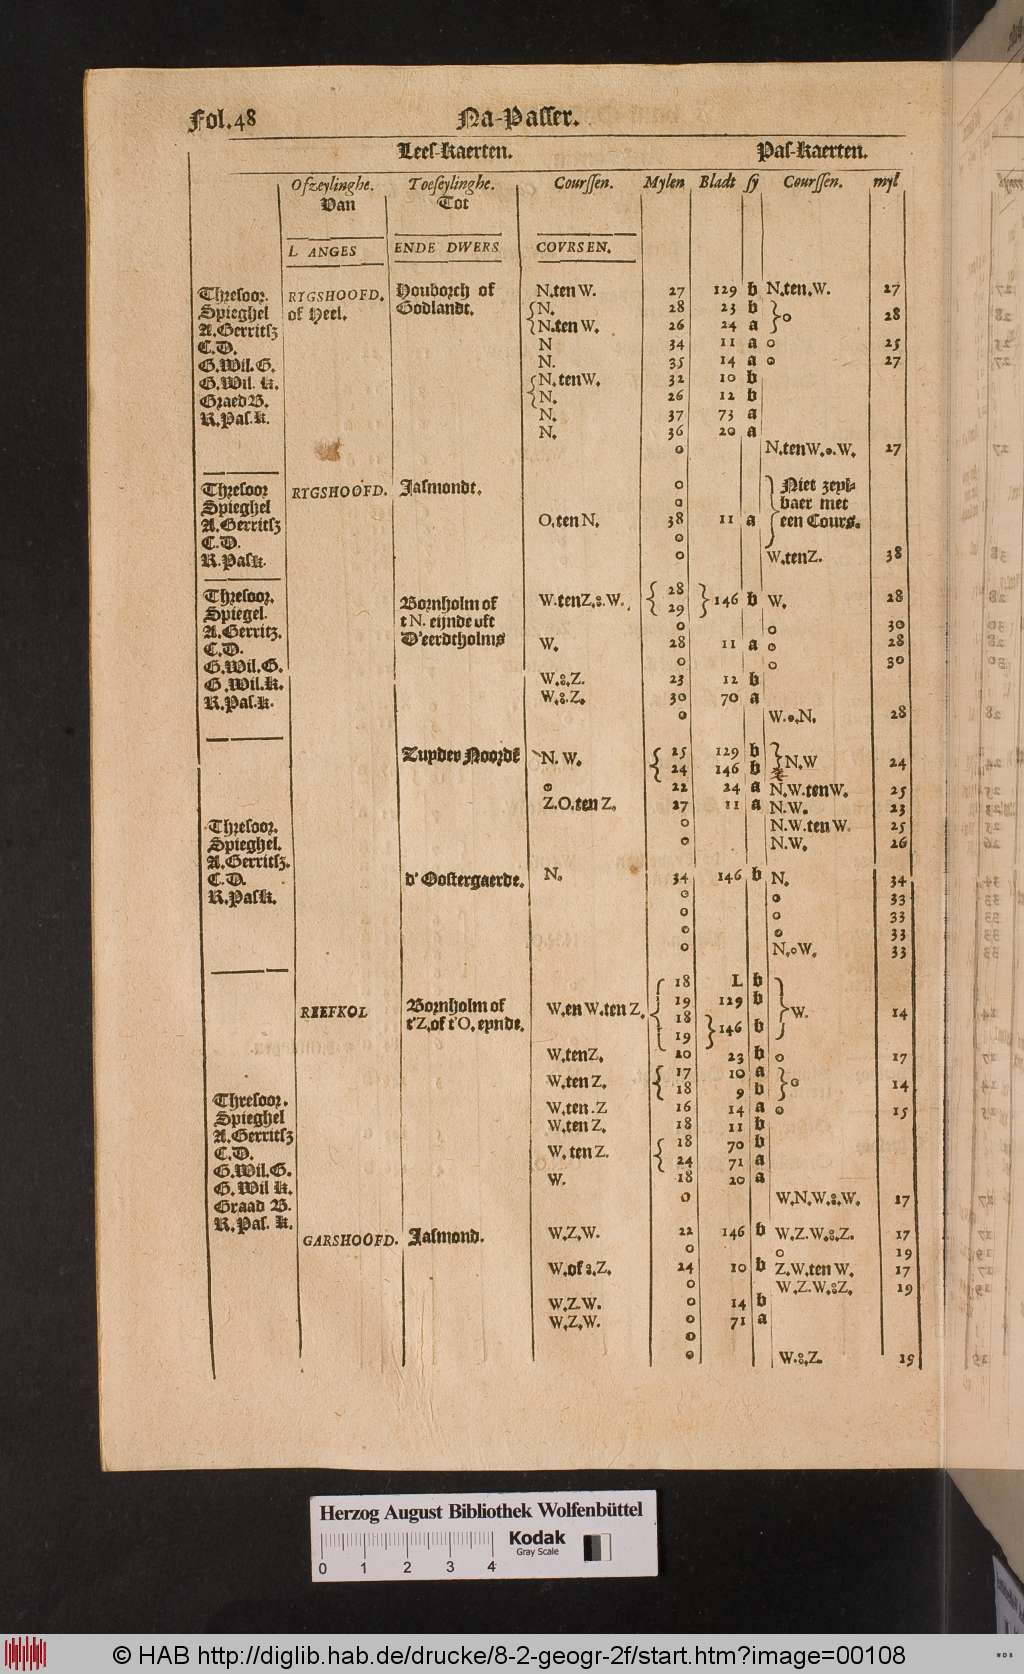 Fol.48 Na-Passer.
Lees-kaerten. Pas-kaerten.
Ofzeylinghe. Toeseylinghe. Courssen. Mylen Bladt sy Courssen. myl
Van Tot
L ANGES ENDE DWERS COVRSEN.
Thresoor. RYGSHOOFD. Houborch of N.ten W. 27 129 b N.ten.W. 27
Spieghel of Heel. Godlandt. N. 28 23 b o 28
A.Gerritsz N.ten W. 26 24 a
C.D. N 34 11 a o 25
G.Wil.G. N. 35 14 a o 27
G.Wil. k. N.tenW. 32 10 b
Graed B. N. 26 12 b
R.Pas.k. N. 37 73 a
N. 36 20 a
o N.tenW.o.W. 27
Thresoor RYGSHOOFD. Jasmondt. o Niet zeyl-
Spieghel o baer met
A.Gerritsz O.ten N. 38 11 a een Cours.
C.D. o
R.Pask. o W.tenZ. 38
Thresoor. Bornholm of W.tenZ.8.W. 28 146 b W. 28
Spiegel. t N. eijnde oft 29
A.Gerritz. D'eerdtholms o o 30
C.D. W. 28 11 a o 28
G.Wil.G. o o 30
G.Wil.k. W.8.Z. 23 12 b
R.Pas.k. W.8.Z. 30 70 a
o W.o.N. 28
Zuyder Noorde N. W. 25 129 b N.W 24
24 146 b
o 22 24 a N.W.tenW. 25
Z.O.ten Z. 27 11 a N.W. 23
Thresoor. o N.W.ten W. 25
Spieghel. o N.W. 26
A.Gerritsz.
C.D. d'Oostergaerde. N. 34 146 b N. 34
R.Pask. o o 33
o o 33
o o 33
o N.oW. 33
18 L b
REEFKOL Bornholm of W.en W.ten Z. 19 129 b W. 14
t'Z.of t'O. eynde. 18 146 b
19
W.tenZ. 20 23 b o 17
W.ten Z. 17 10 a o 14
18 9 b
Thresoor. W.ten.Z 16 14 a o 15
Spieghel W.ten Z. 18 11 b
A.Gerritsz W.ten Z. 18 70 b
C.D. 24 71 a
G.Wil.G. W. 18 20 a
G.Wil k. o W.N.W.8.W. 17
Graad B.
R.Pas. k.
GARSHOOFD. Jasmond. W.Z.W. 22 146 b W.Z.W.8.Z. 17
o o 19
W.of 2.Z. 24 10 b Z.W.ten W. 17
o W.Z.W.8.Z. 19
W.Z.W. o 14 b
W.Z.W. o 71 a
o
o W.8.Z. 19
Herzog August Bibliothek Wolfenbüttel
Kodak
Gray Scale
0 1 2 3 4
© HAB http://diglib.hab.de/drucke/8-2-geogr-2f/start.htm?image=00108